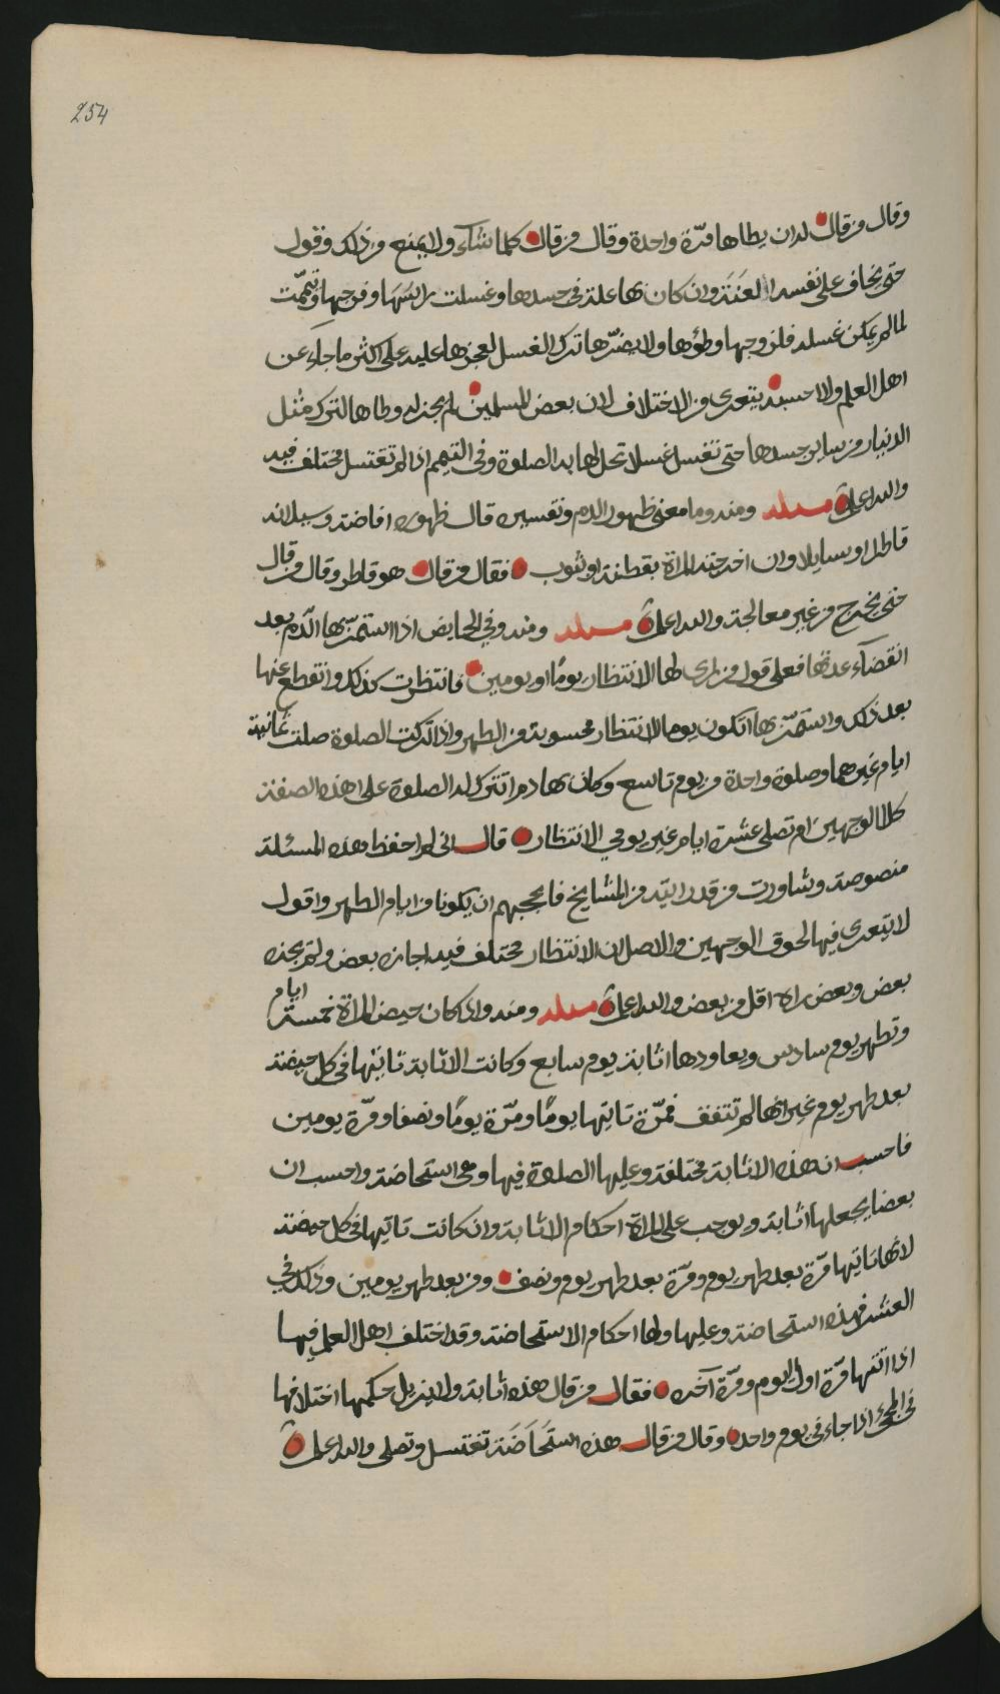 254
وقال من قال له ان يطاها مرّة واحدة وقال من قال كلما شآء ولا يمنع من ذلك وقول
حتى يخاف على نفسه العَنَتَ وان كان بها علة في جسدها وغسلت راسَهَا وفرجها وتيممّت
لما لم يمكن غسله فلزوجها وطؤها ولا يضرّها ترك الغسل لعجزها عليه على اكثر ما جآء عن
اهل العلم ولا احسبه يتعدى من الاختلاف لان بعض المسلمين لم يجز له وطاها لترك مثل
الدينار من ساير جسدها حتى تغسل غسلا تحل لها به الصلوة وفي التيمم اذا لم تغتسل مختلف فيه
والله اعلم مسئلة ومنه وما معنى ظهور الدم وتفسيره قال ظهوره افاضته وسيلانه
قاطرا او سايلا وان اخرجته المراة بقطنة او ثوب فقال من قال هو قاطر وقال من قال
حتى يخرج من غير معالجة والله اعلم مسئلة ومنه وفي الحايض اذا استمرّ بها الدّم بعد
انقضآء عدتها فعلى قول من يرى لها الانتظار يومًا او يومين فانتظرت كذلك وانقطع عنها
بعد ذلك واستمرّ بها اتكون يوما الانتظار محسوبة من الطهر واذا تركت الصلوة صلت ثمانية
ايام غيرهما وصلوة واحدة من يوم تاسع وكان بها دم اتترك له الصلوة على هذه الصفة
كلا الوجهين ام تصلي عشرة ايام غير يومي الانتظار قال اني لم احفظ هذه المسئلة
منصوصة وشاورت من قدرايته من المشايخ فاعجبهم ان يكونا من ايام الطهر واقول
لا يتعرى فيها لحوق الوجهين والاصل ان الانتظار مختلف فيه اجازه بعض ولم يجزه
بعض وبعض راه اقل من بعض والله اعلم مسئلة ومنه واذا كان حيض المراة خمسة ايام
وتطهر يوم سادس ويعاودها اثابة يوم سابع وكانت الاثابة تاتيها في كل حيضة
بعد طهر يوم غير انها لم تتفق فمرّة تاتيها يومًا ومرّة يومًا ونصفا ومرّة يومين
فاحسب ان هذه الاثابة مختلفة وعليها الصلوة فيها وهي استحاضة واحسب ان
بعضا يجعلها اثابة ويوجب على المراة احكام الاثابة وان كانت تاتيها في كل حيضة
لانها تاتيها مرّة بعد طهر يوم ومرّة بعد طهر يوم ونصف ومن بعد طهر يومين وذلك في
العشر فهذه استحاضة وعليها ولها احكام الاستحاضة وقد اختلف اهل العلم فيها
اذا اتتها مرّة اول اليوم ومرّة آخره فقال من قال هذه اثابة ولا يزيل حكمها اختلافها
في المجئ اذا جاء في يوم واحد وقال من قال هذه استحاضة تغتسل وتصلي والله اعلم